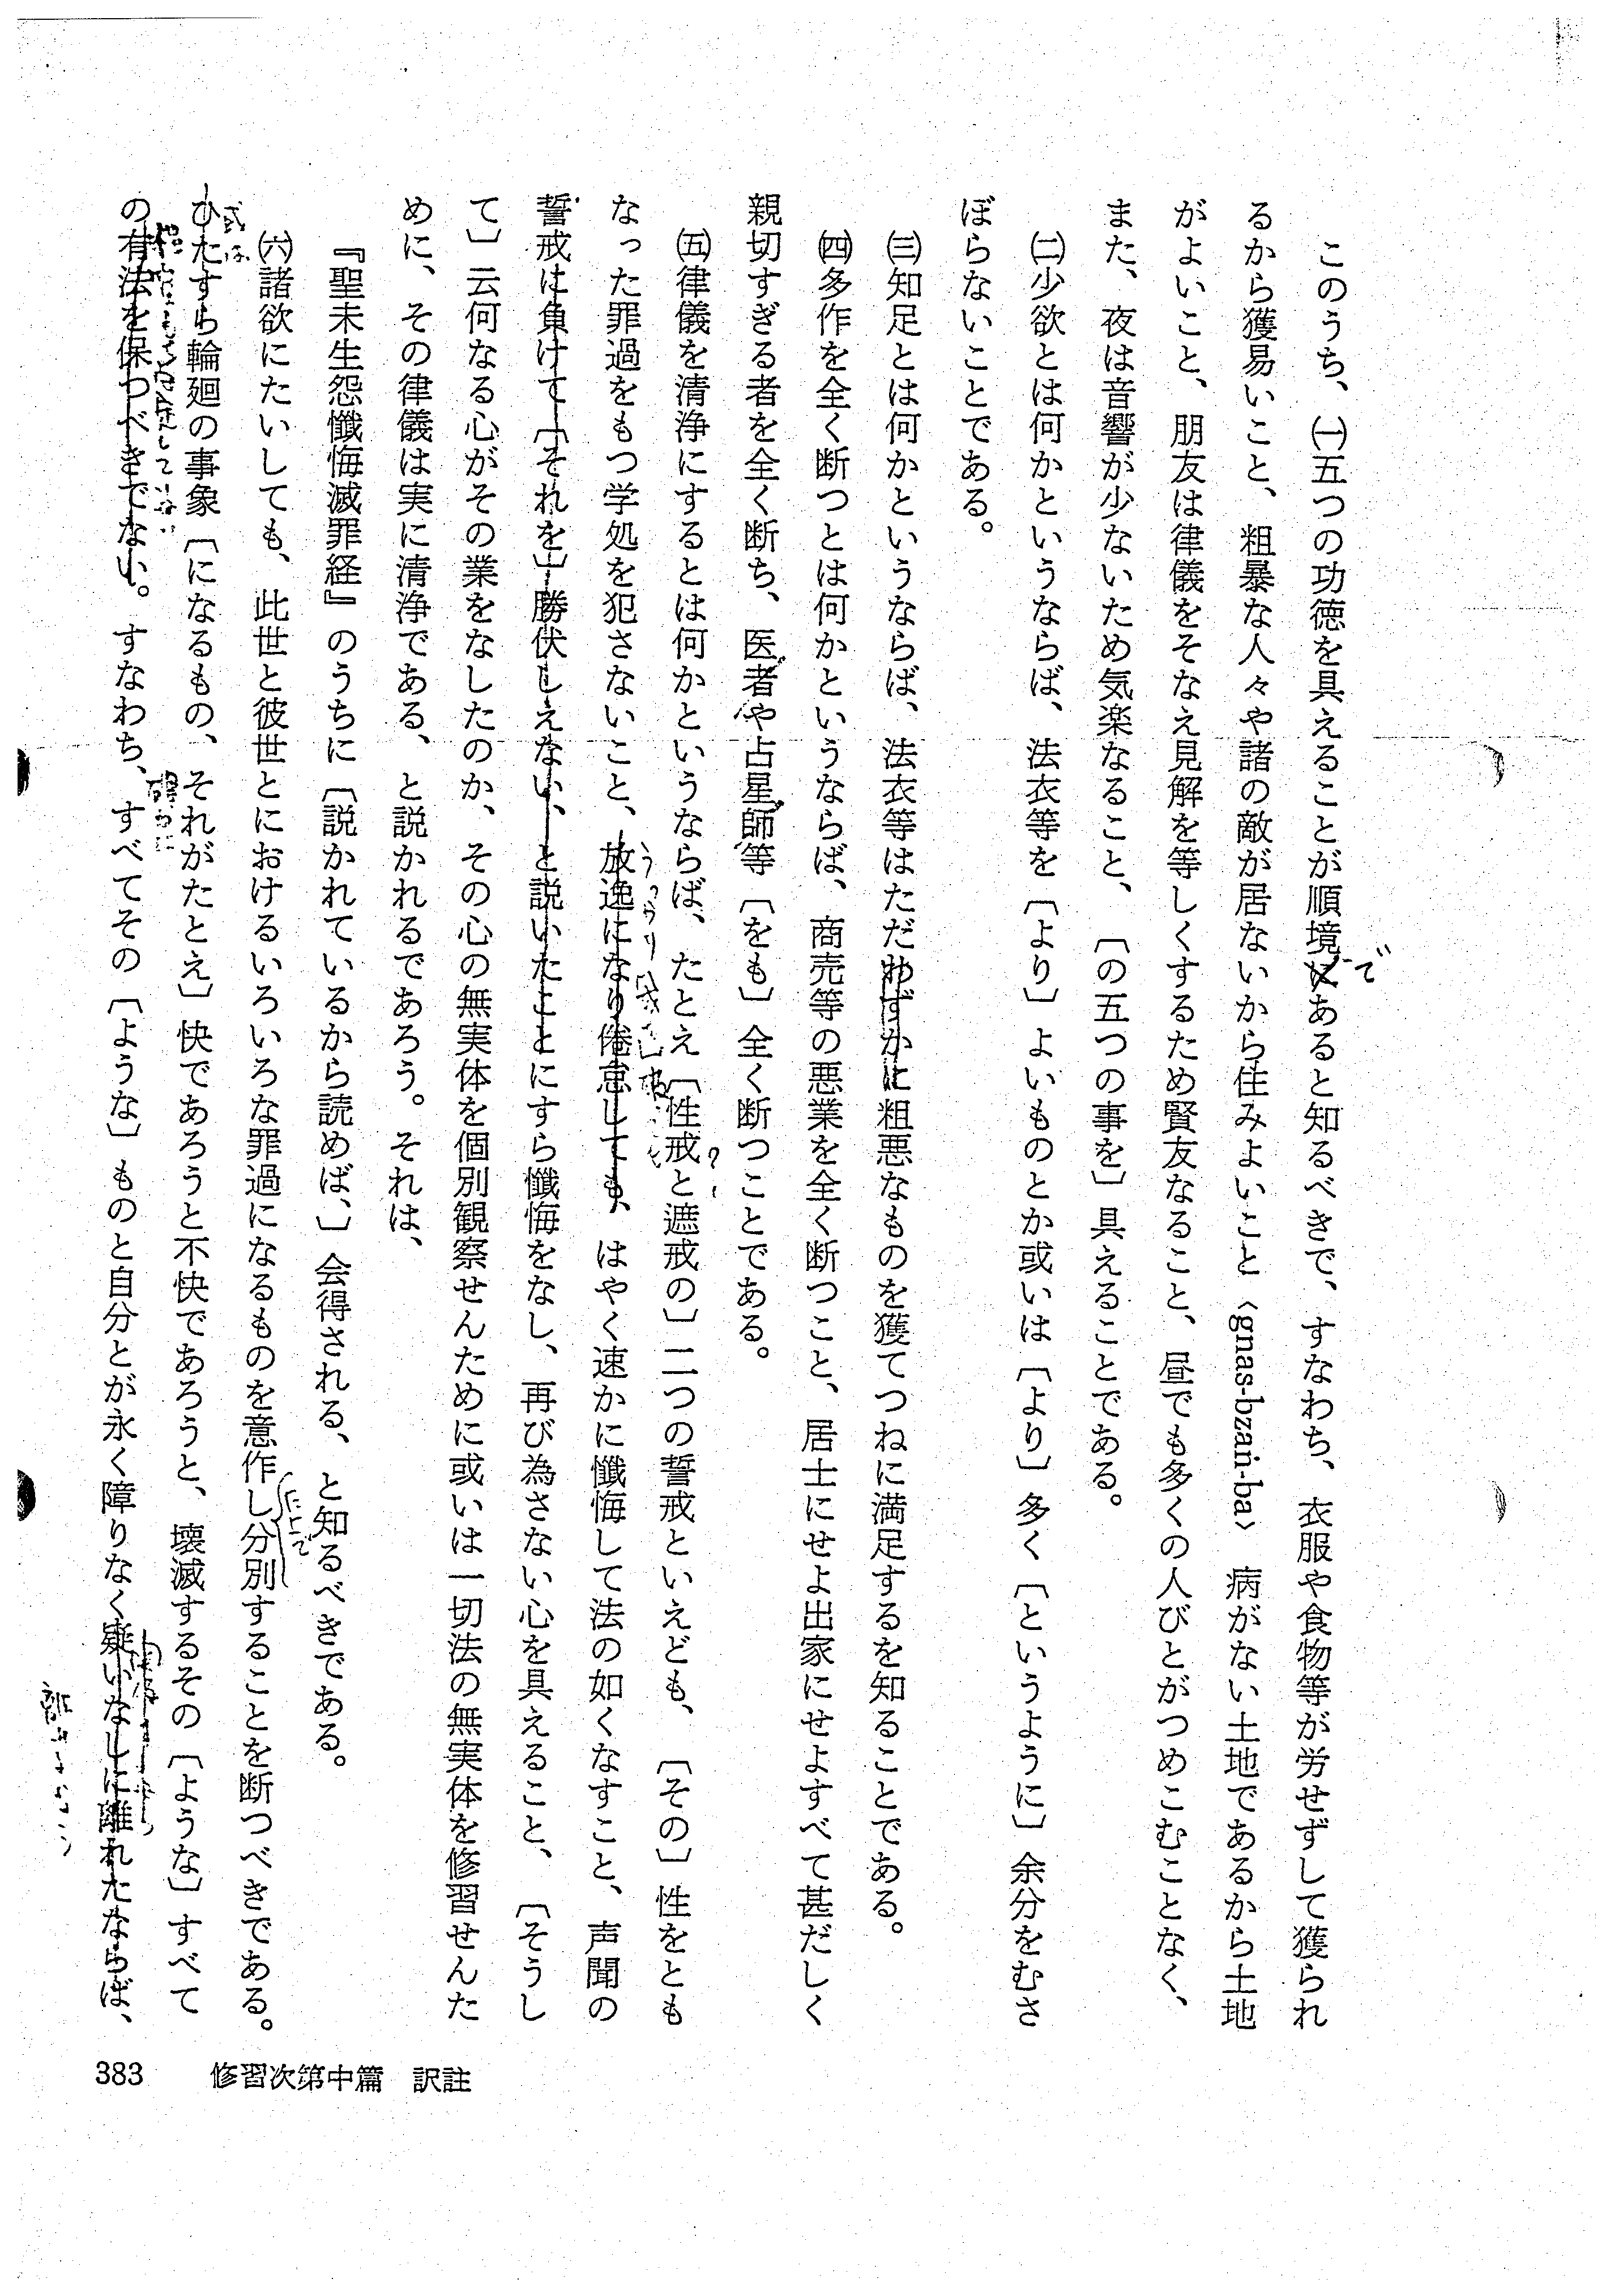 このうち、㈠五つの功徳を具えることが順境にあると知るべきで、すなわち、衣服や食物等が労せずして獲られ
で
るから獲易いこと、粗暴な人々や諸の敵が居ないから住みよいこと〈gnas-bzaṅ-ba〉病がない土地であるから土地
がよいこと、朋友は律儀をそなえ見解を等しくするため賢友なること、昼でも多くの人びとがつめこむことなく、
また、夜は音響が少ないため気楽なること、〔の五つの事を〕具えることである。
㈡少欲とは何かというならば、法衣等を〔より〕よいものとか或いは〔より〕多く〔というように〕余分をむさ
ぼらないことである。
㈢知足とは何かというならば、法衣等はただわずかに粗悪なものを獲てつねに満足するを知ることである。
㈣多作を全く断つとは何かというならば、商売等の悪業を全く断つこと、居士にせよ出家にせよすべて甚だしく
親切すぎる者を全く断ち、医者や占星師等〔をも〕全く断つことである。
㈤律儀を清浄にするとは何かというならば、たとえ〔性戒と遮戒の〕二つの誓戒といえども、〔その〕性をとも
なった罪過をもつ学処を犯さないこと、放逸になり倦怠しても、はやく速かに懺悔して法の如くなすこと、声聞の
誓戒に負けて〔それを〕勝伏しえない、と説いたことにすら懺悔をなし、再び為さない心を具えること、〔そうし
て〕云何なる心がその業をなしたのか、その心の無実体を個別観察せんために或いは一切法の無実体を修習せんた
めに、その律儀は実に清浄である、と説かれるであろう。それは、
『聖未生怨懺悔滅罪経』のうちに〔説かれているから読めば、〕会得される、と知るべきである。
㈥諸欲にたいしても、此世と彼世とにおけるいろいろな罪過になるものを意作し分別することを断つべきである。
ひたすら輪廻の事象〔になるもの、それがたとえ〕快であろうと不快であろうと、壊滅するその〔ような〕すべて
の有法を保つべきでない。すなわち、すべてその〔ような〕ものと自分とが永く障りなく疑いなしに離れたならば、
383 修習次第中篇 訳註